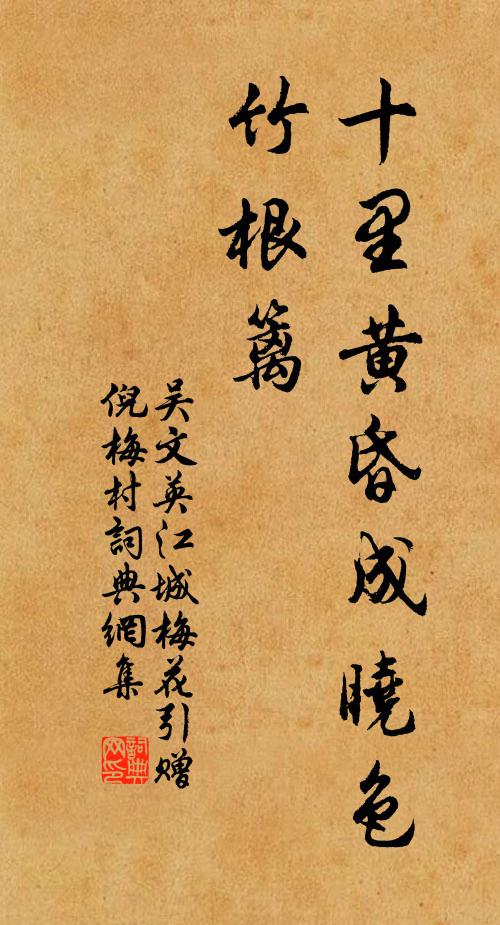 十里黄昏成曉色
竹根籬
吴文英江城梅花引贈
倪梅村詞典網集
詞典
网印